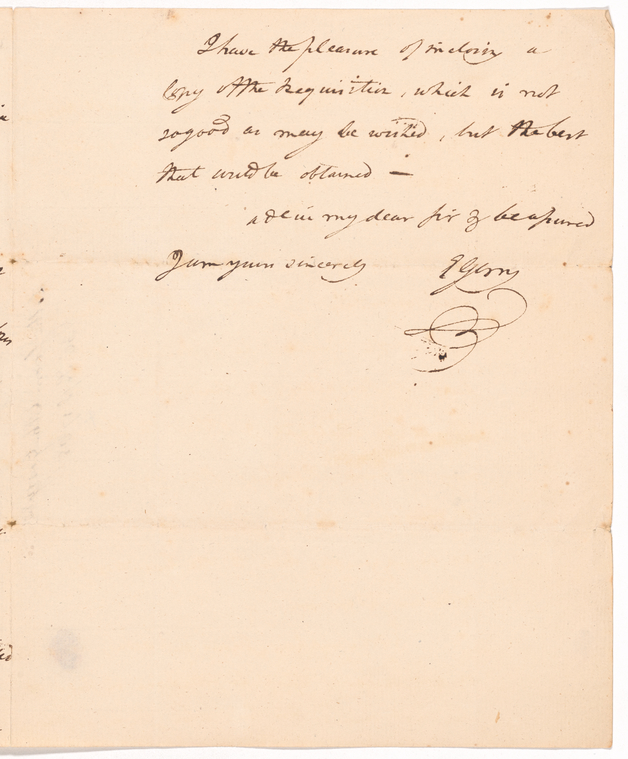 I have the pleasure of inclosing a
Copy of the Requisition, which is not
so good as may be wished, but the best
that could be obtained —
adeiu my dear sir & be assured
I am yours sincerely E Gerry